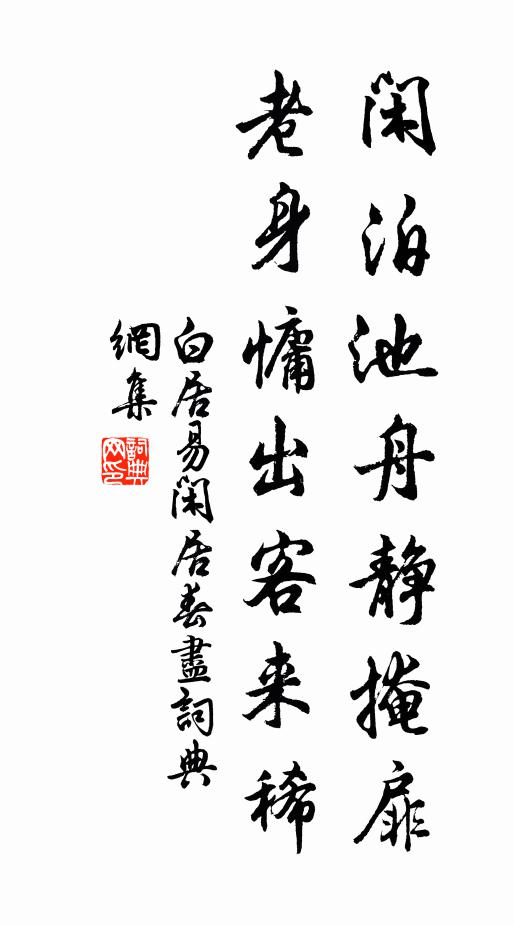 閑泊池舟静掩扉
老身慵出客来稀
白居易閑居春盡詞典
網集
詞典
网印